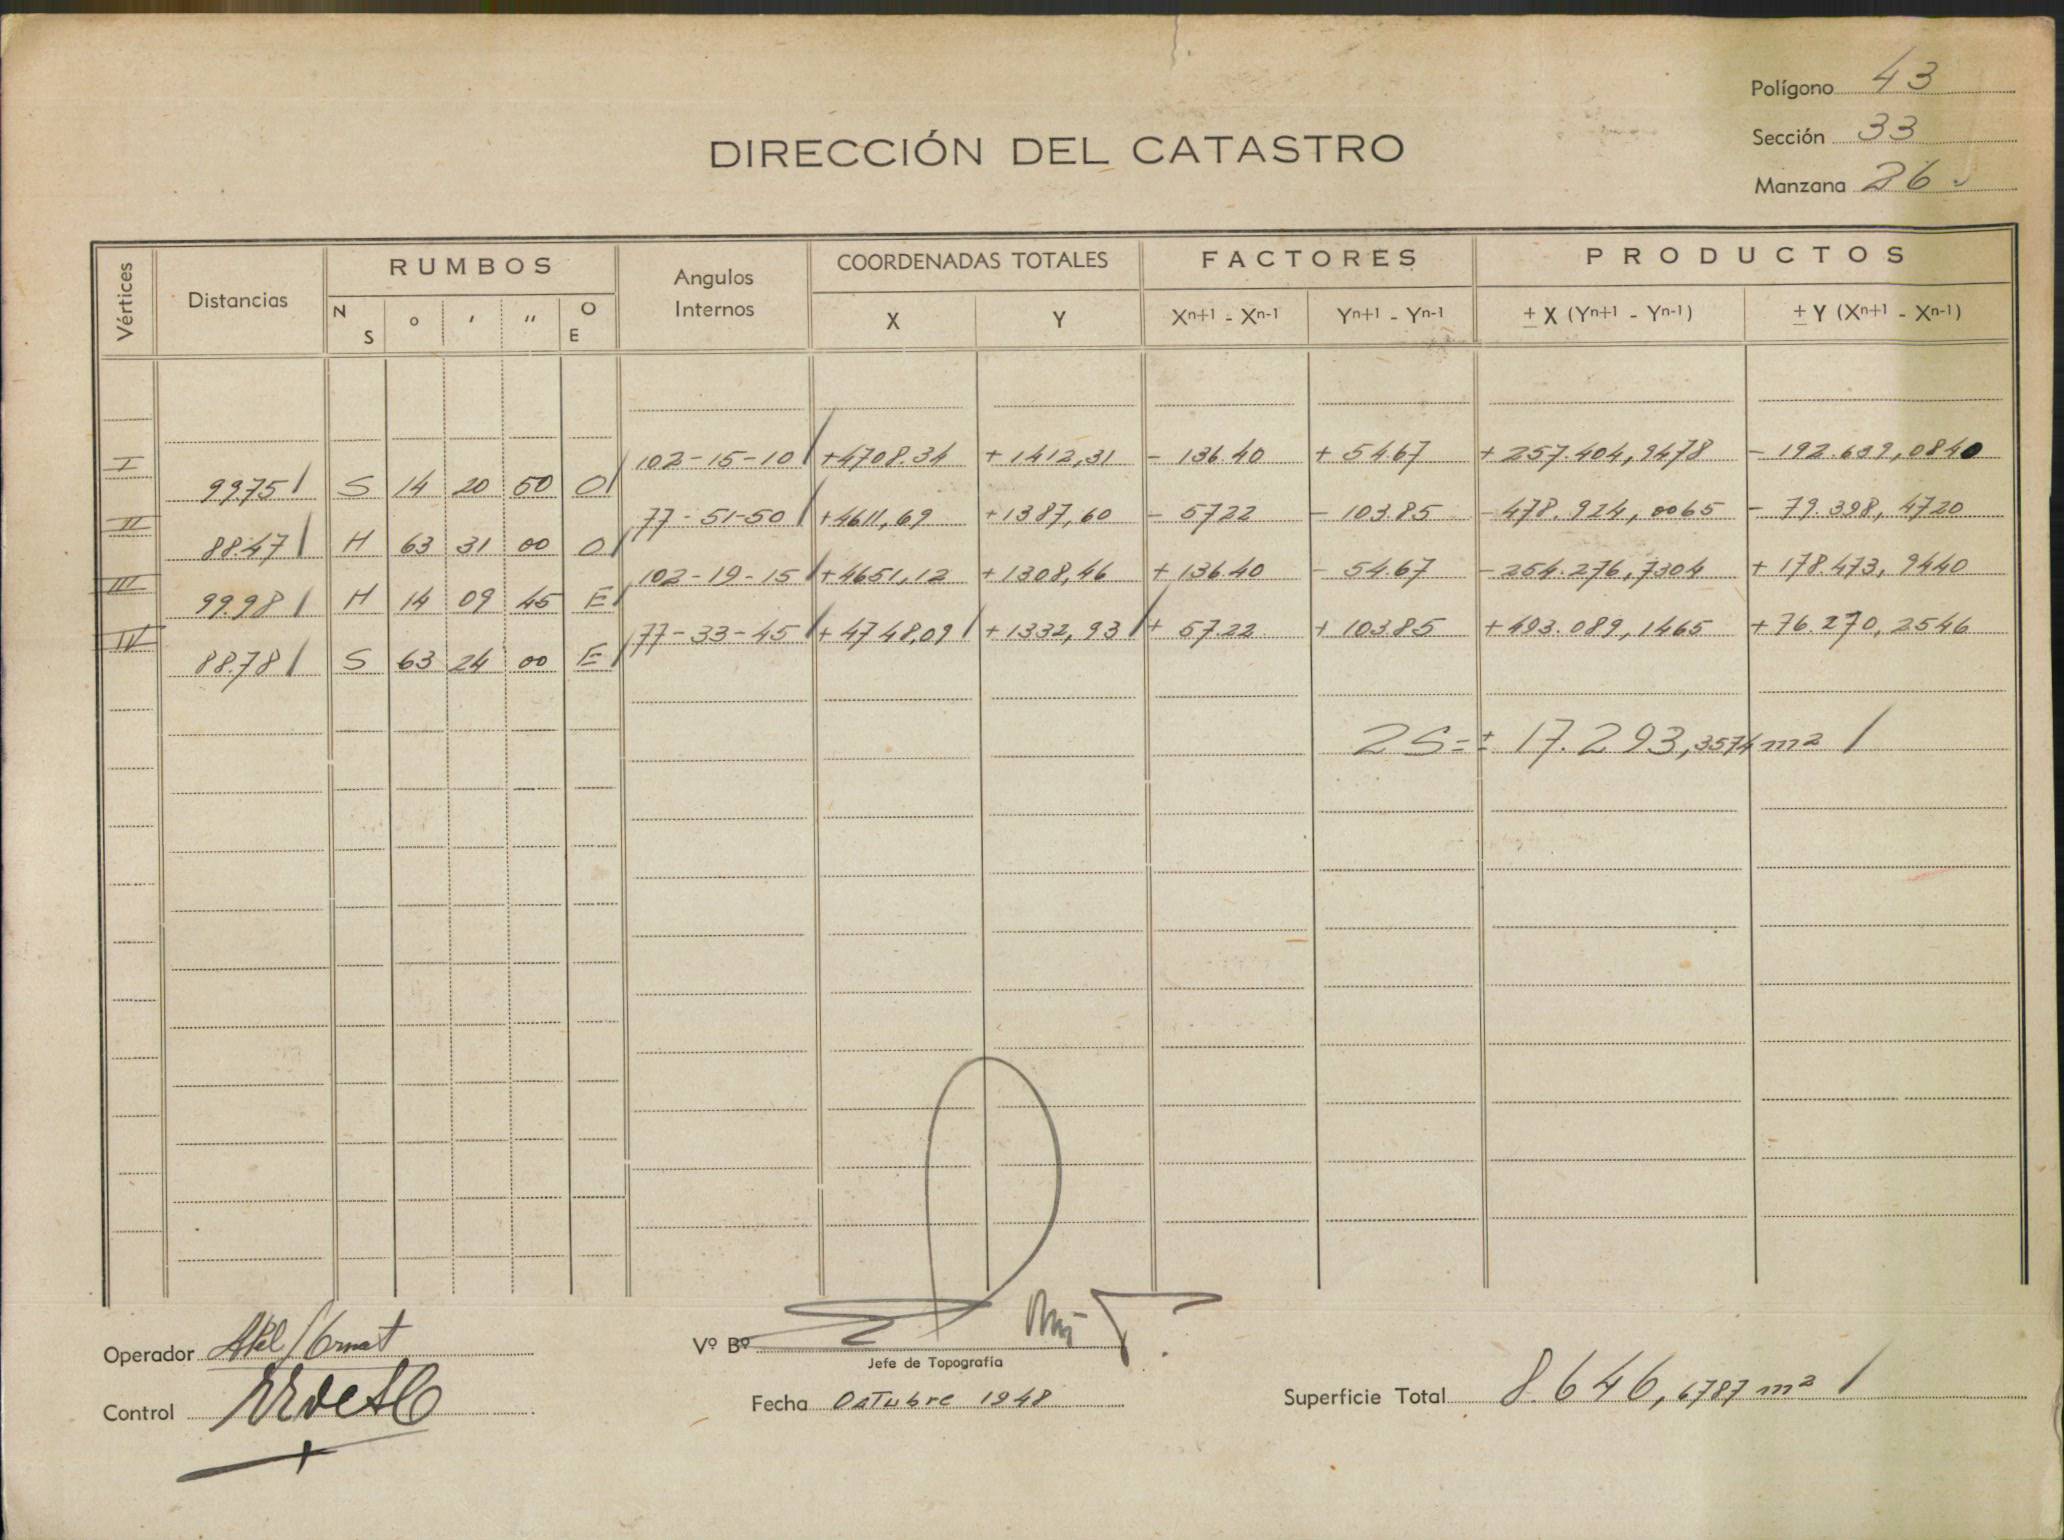 Polígono 43
Sección 33
Manzana 26
DIRECCIÓN DEL CATASTRO
Vértices Distancias RUMBOS Angulos Internos COORDENADAS TOTALES FACTORES PRODUCTOS
N S ° ' " O E X Y Xn+1 - Xn-1 Yn+1 - Yn-1 ± X (Yn+1 - Yn-1) ± Y (Xn+1 - Xn-1)
I 102-15-10 +4708.34 +1412,31 - 136.40 + 54.67 + 257.404,9478 - 192.639,0840
99.75 S 14 20 50 O
II 77-51-50 +4611,69 +1387,60 - 57.22 - 103.85 - 478.924,0065 - 79.398,4720
88.47 N 63 31 00 O
III 102-19-15 +4651,12 +1308,46 + 136.40 - 54.67 - 254.276,7304 + 178.473,9440
99.98 N 14 09 45 E
IV 77-33-45 +4748,09 +1332,93 + 57.22 + 103.85 +493.089,1465 +76.270,2546
88.78 S 63 24 00 E
2S = ± 17.293,3574 m²
Operador
Vº Bº
Jefe de Topografía
Control
Fecha Octubre 1948
Superficie Total 8.646,6787 m²